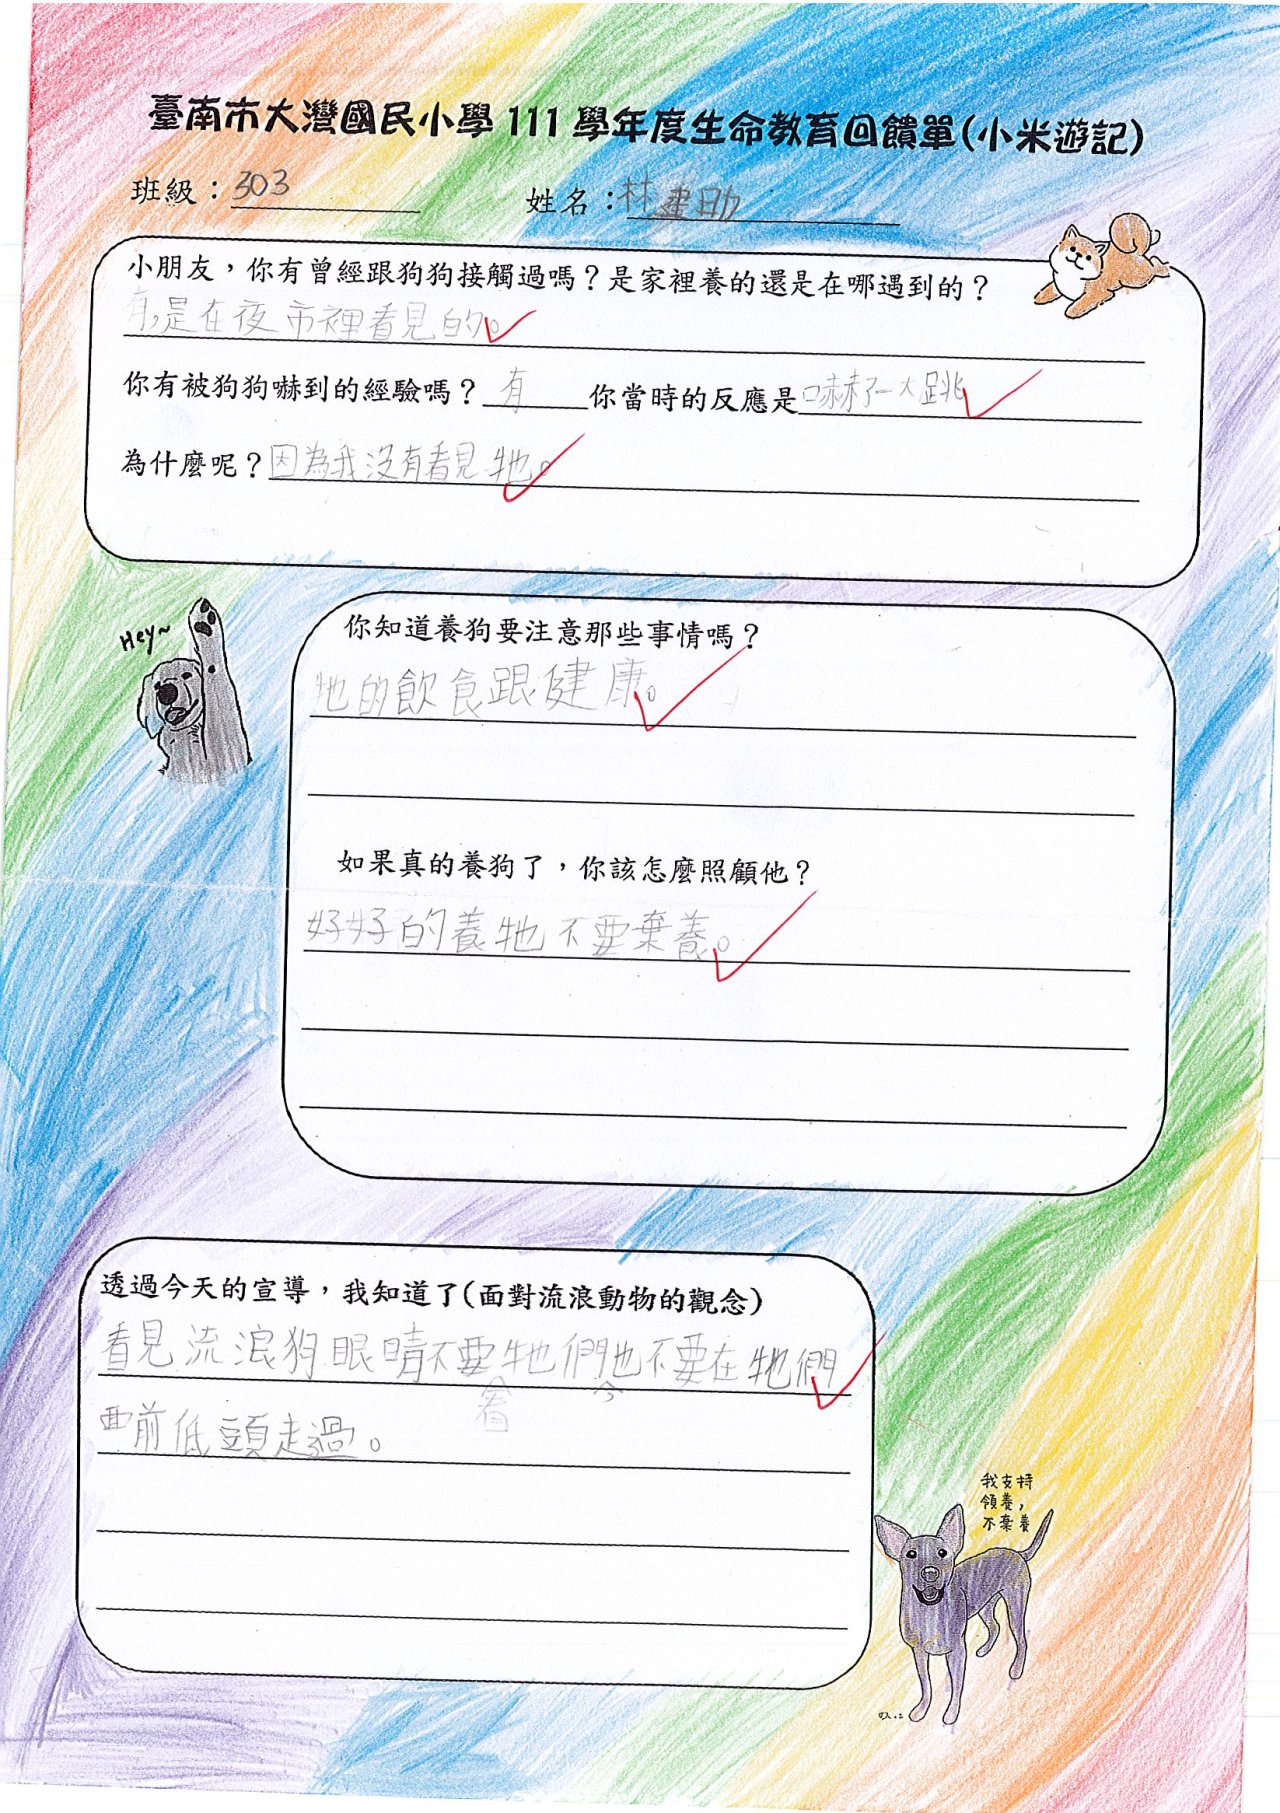 臺南市大灣國民小學 111 學年度生命教育回饋單(小米遊記)
班級：303 姓名：林建勛
小朋友，你有曾經跟狗狗接觸過嗎？是家裡養的還是在哪遇到的？
有,是在夜市裡看見的。
你有被狗狗嚇到的經驗嗎？有 你當時的反應是嚇了一大跳
為什麼呢？因為我沒有看見牠。
Hey~
你知道養狗要注意那些事情嗎？
牠的飲食跟健康。
如果真的養狗了，你該怎麼照顧他？
好好的養牠不要棄養。
透過今天的宣導，我知道了(面對流浪動物的觀念)
看見流浪狗眼睛不要看牠們也不要在牠們
面前低頭走過。
我支持
領養，
不棄養